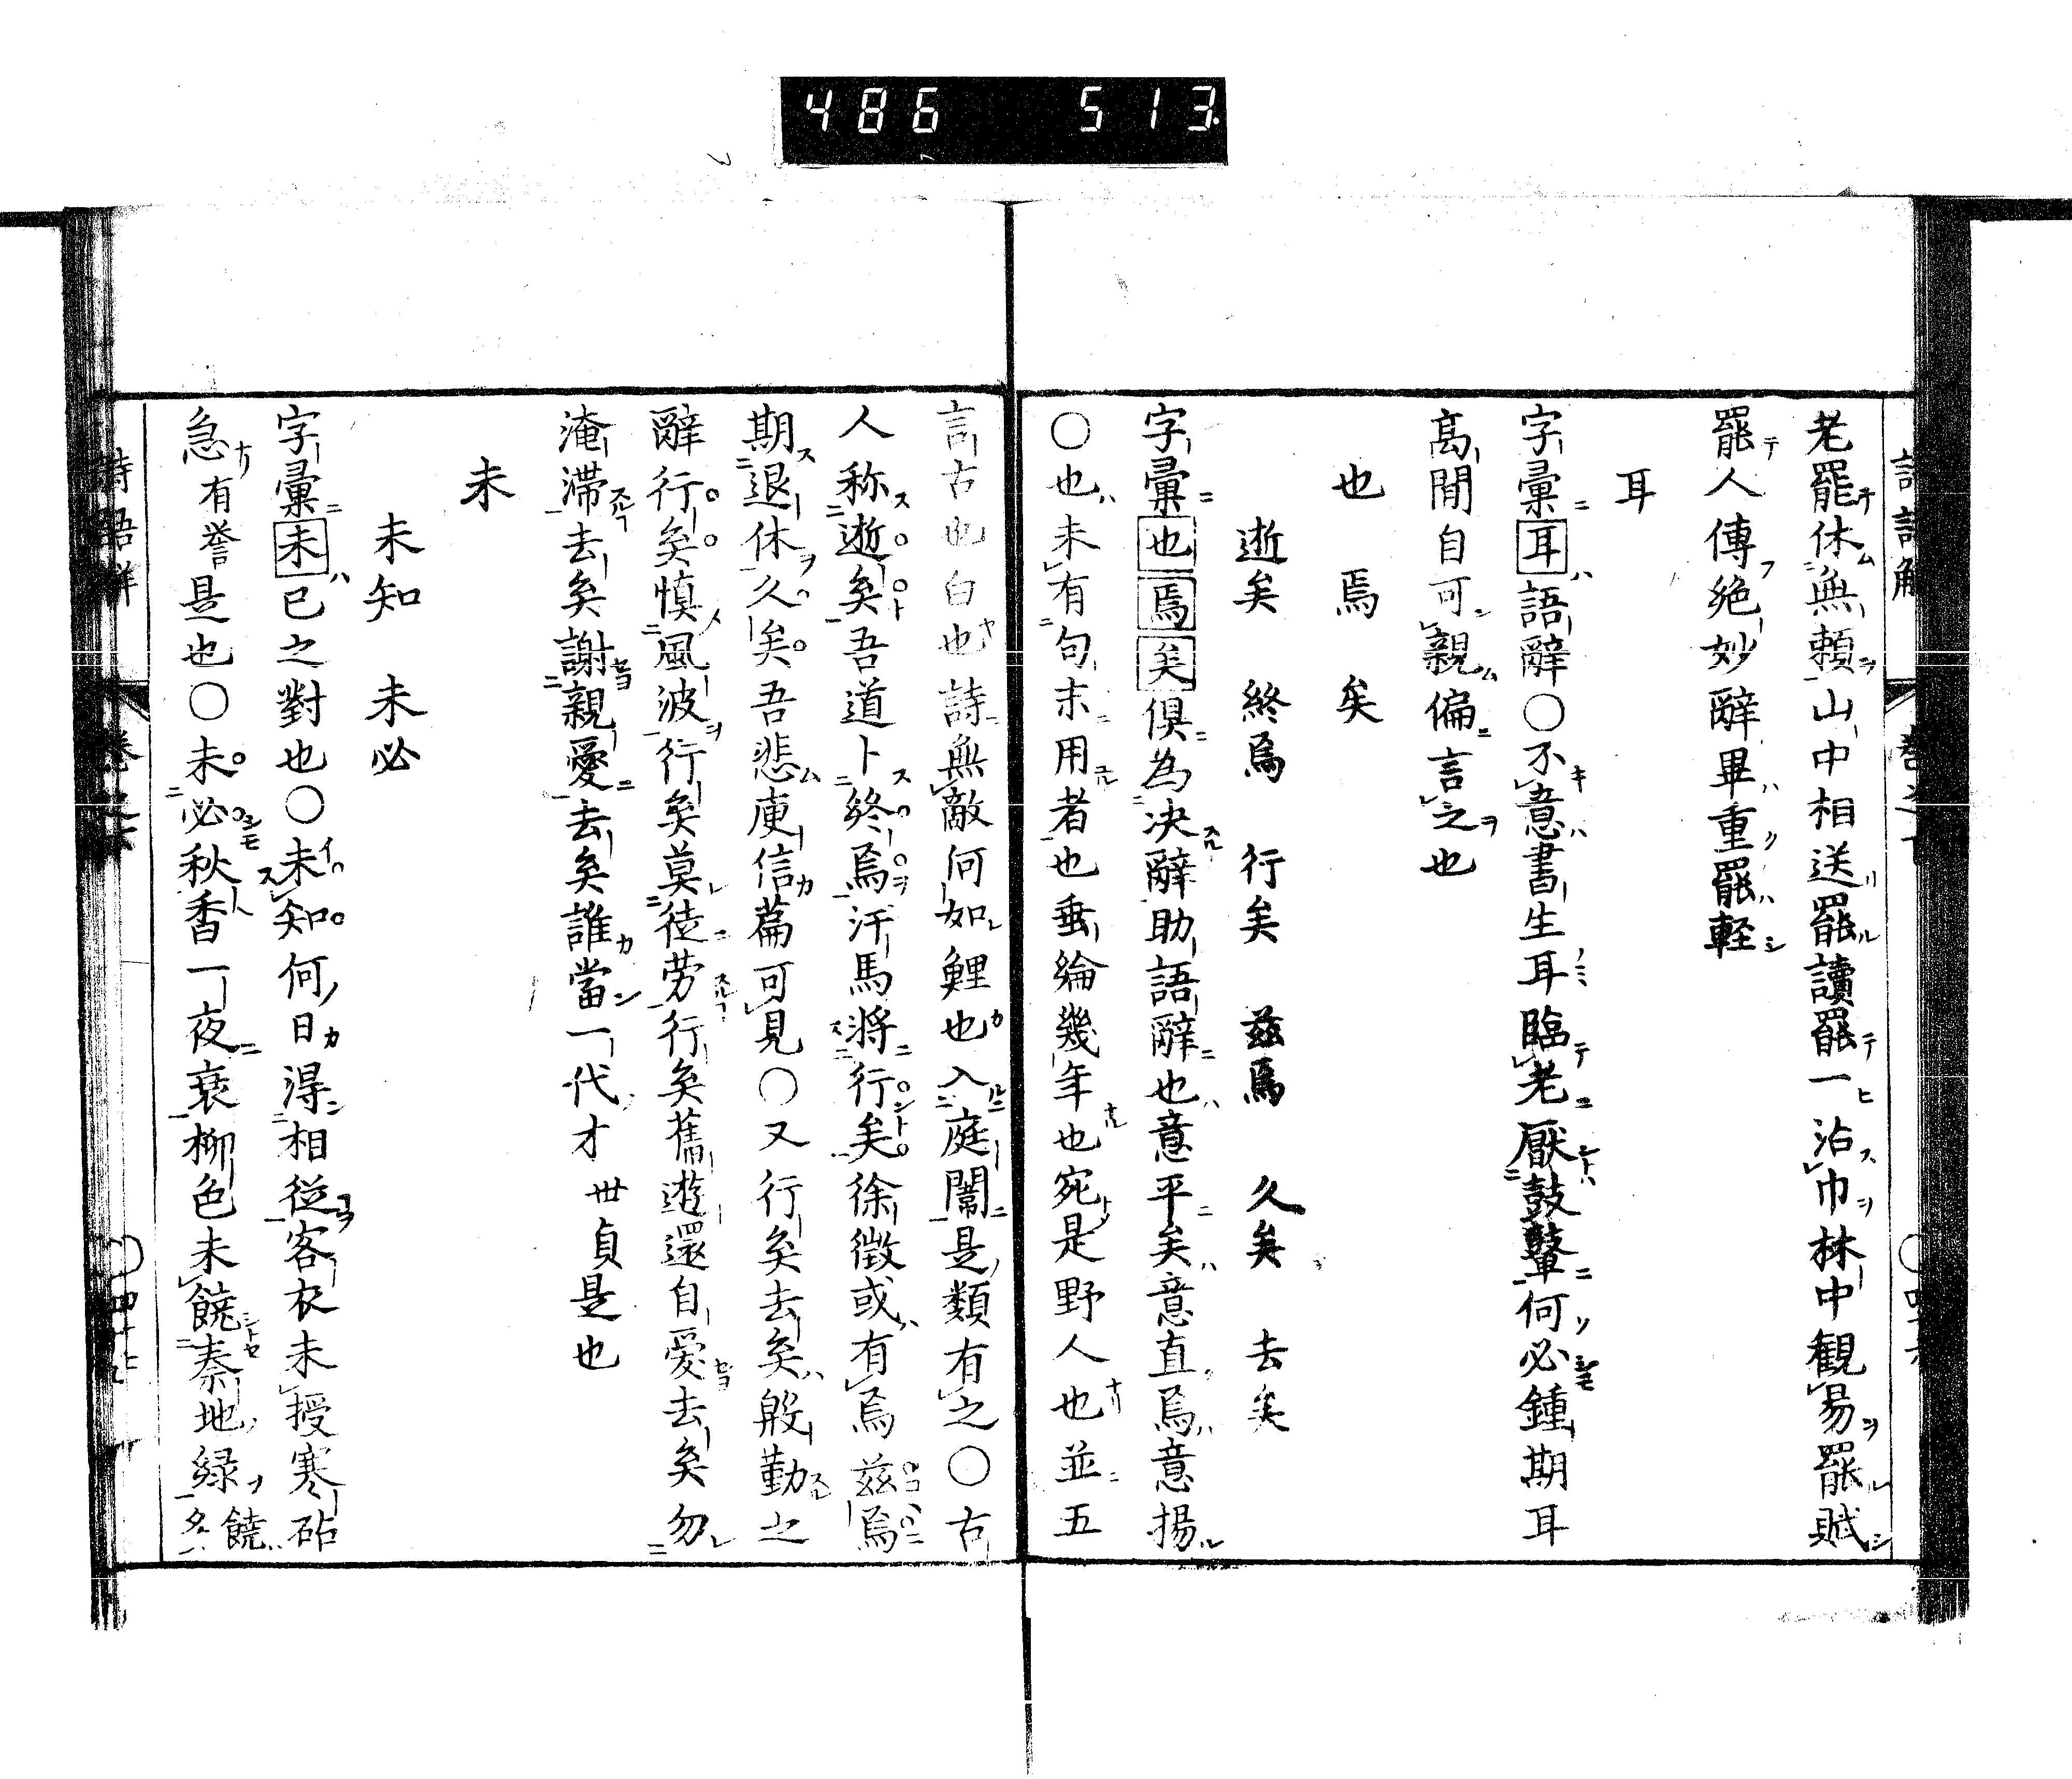 486 513
老罷休無頼山中相送罷讀罷一沾巾林中觀易罷賦
罷人傳絶妙辭畢重罷輕
耳
字彙耳語辭〇不意書生耳臨老厭鼓鼙何必鍾期耳
高閒自可親偏言之也
也 焉 矣
逝矣 終焉 行矣 茲焉 久矣 去矣
字彙也焉矣倶為决辭助語辭也意平矣意直焉意揚
〇也未有句末用者也垂綸幾年也宛是野人也並五
言古也白也詩無敵何如鯉也入庭闈是類有之〇古
人称逝矣吾道卜終焉汗馬将行矣徐徴或有焉茲焉
期退休久矣吾悲庾信篇可見〇又行矣去矣殷勤之
辭行矣慎風波行矣莫徒労行矣舊遊還自愛去矣勿
淹滞去矣謝親愛去矣誰當一代才世貞是也
未
未知 未必
字彙未已之對也〇未知何日得相從客衣未授寒砧
急有誉是也〇未必秋香一夜衰柳色未饒秦地緑饒
詩語解 巻之下 〇四十七